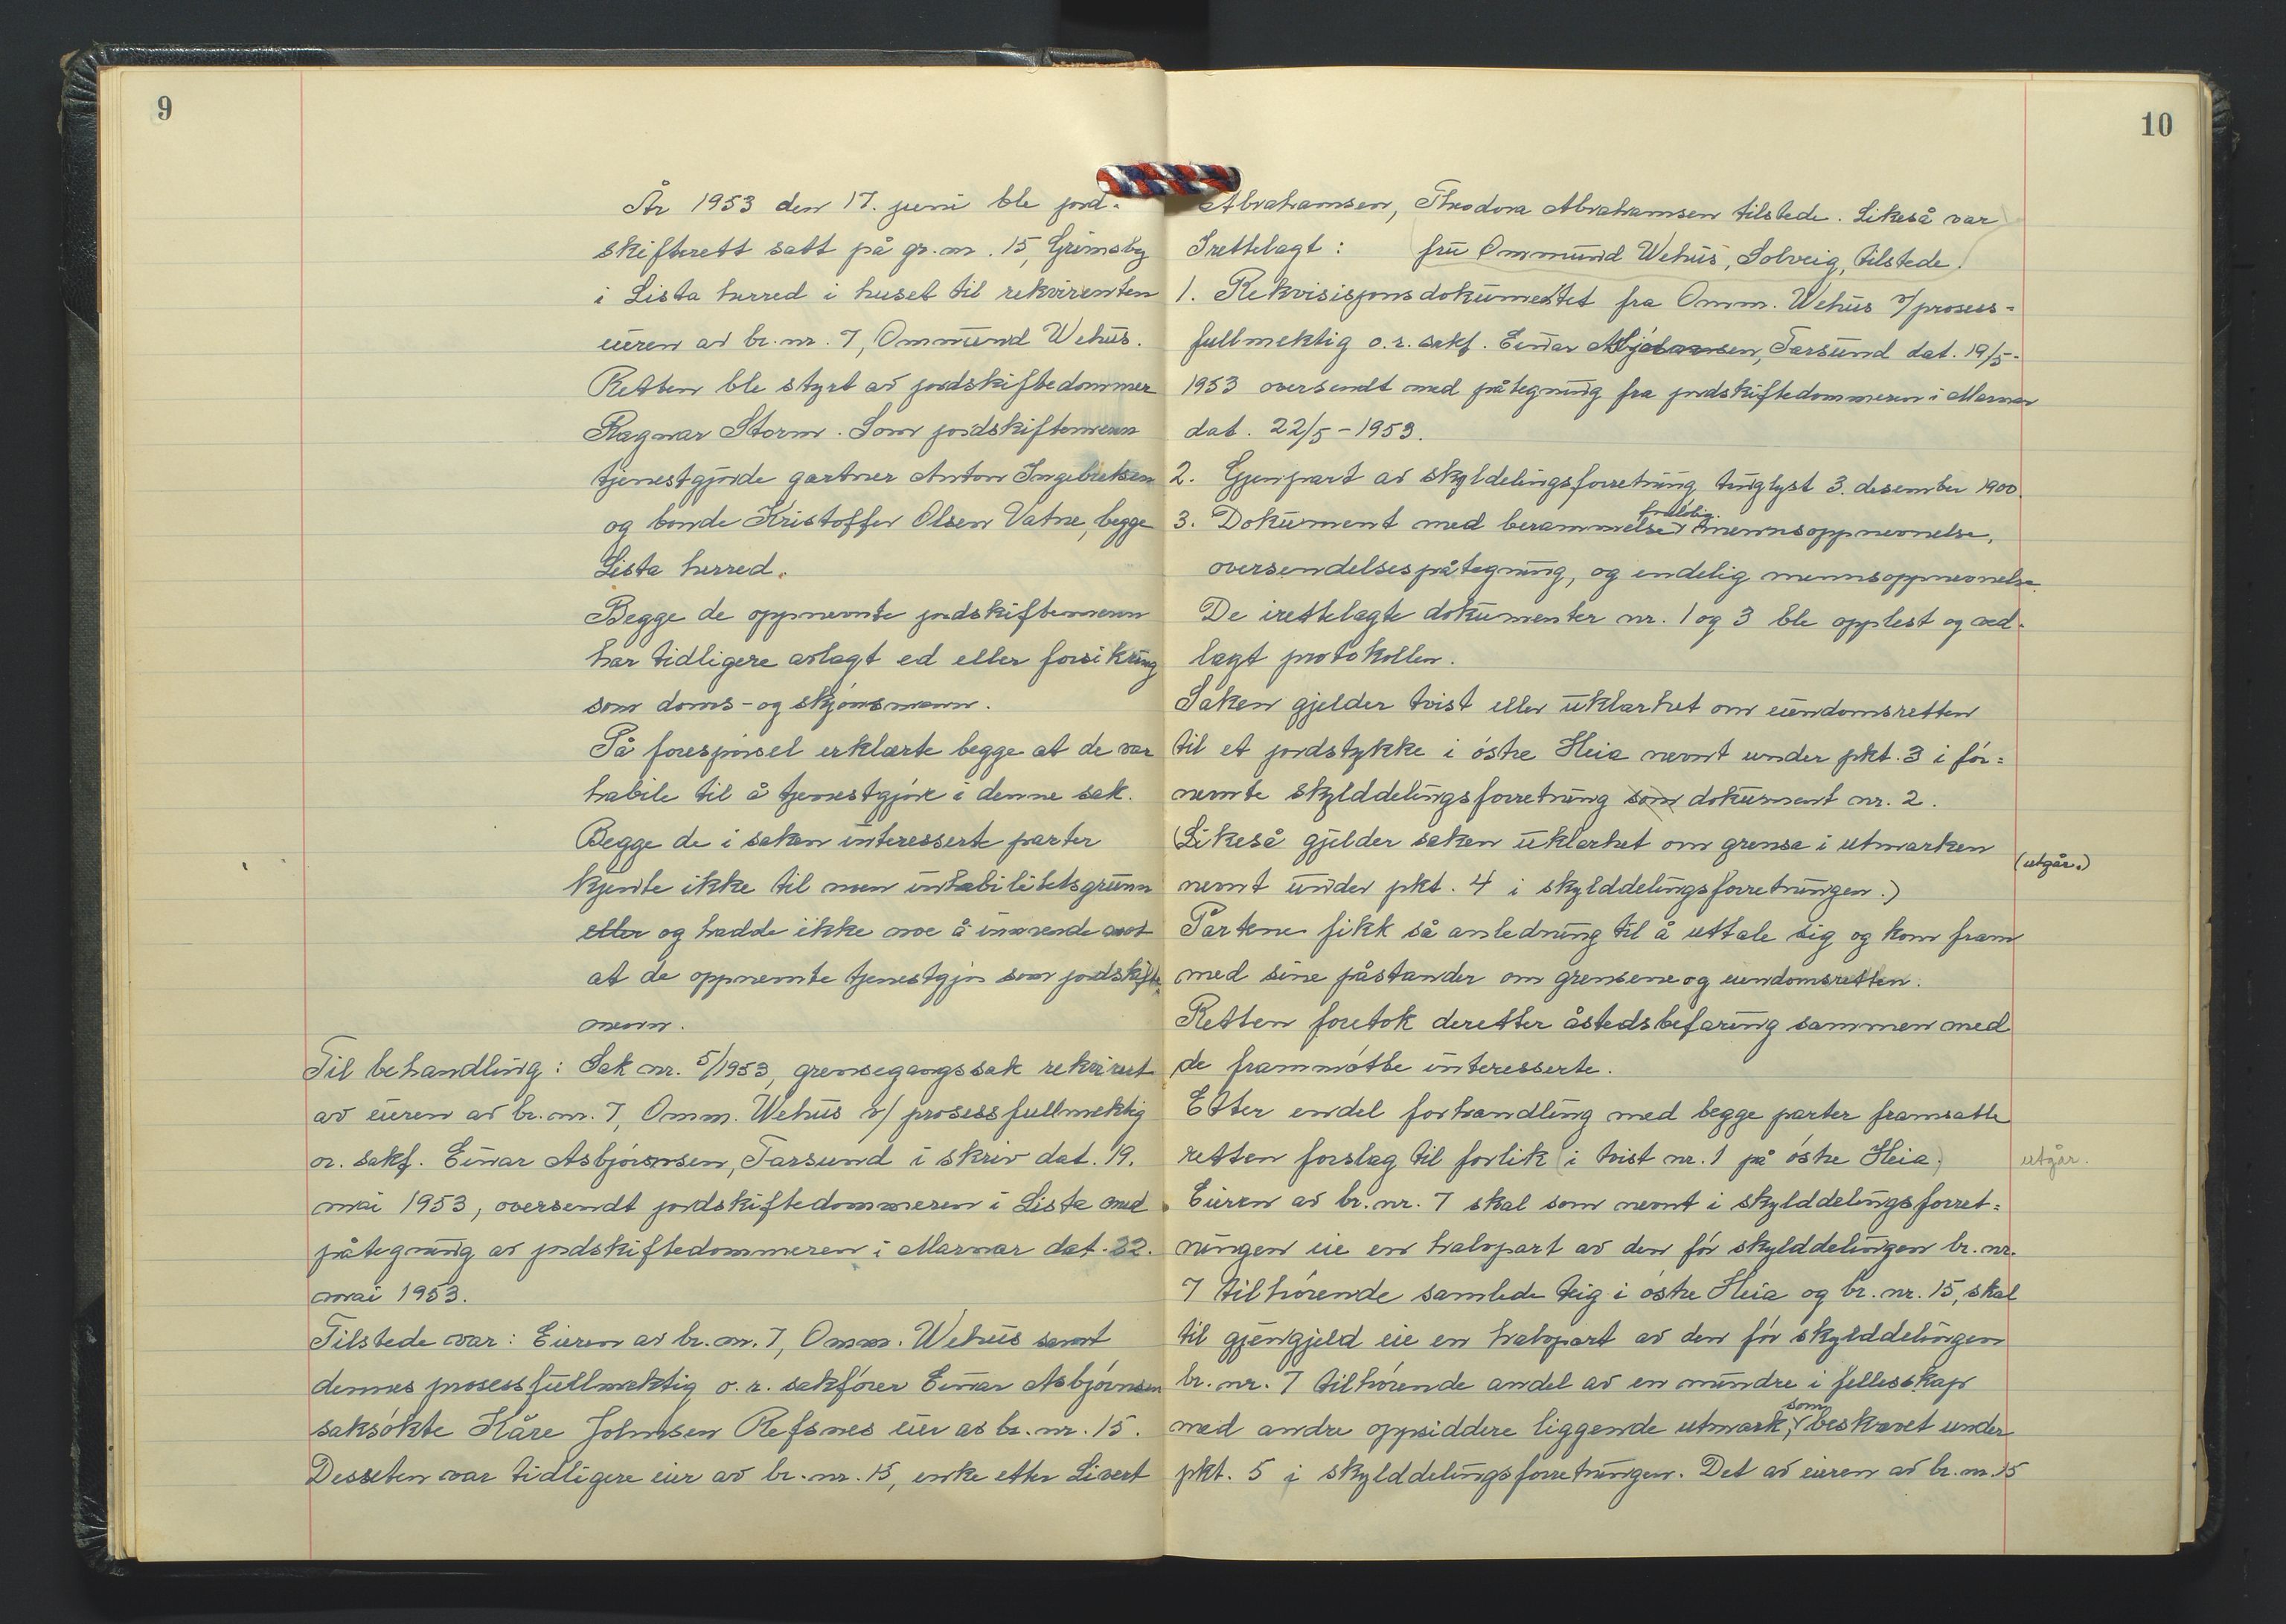 9
År 1953 den 17. juni ble jord-
skifterett satt på gr.nr. 15, Grimsby
i Lista herred i huset til rekvirenten
eieren av br.nr. 7, Ommund Wehus.
Retten ble styrt av jordskiftedommer
Ragnar Storm. Som jordskiftemenn
tjenestgjorde gartner Anton Ingebretsen
og bonde Kristoffer Olsen Vatne, begge
Lista herred.
Begge de oppnevnte jordskiftemenn
har tidligere avlagt ed eller forsikring
som doms- og skjønsmenn.
På forespørsel erklærte begge at de var
habile til å tjenestgjøre i denne sak.
Begge de i saken interesserte parter
kjente ikke til noen inhabilitetsgrunn
eller og hadde ikke noe å innvende mot
at de oppnevnte tjenestgjør som jordskifte-
menn.
Til behandling: Sak nr. 5/1953, grensegangssak rekvirert
av eieren av br.nr. 7, Omm. Wehus v/ prosessfullmektig
o.r. sakf. Einar Asbjørnsen, Farsund i skriv dat. 19.
mai 1953, oversendt jordskiftedommeren i Lista med
påtegning av jordskiftedommeren i Marnar dat. 22.
mai 1953.
Tilstede var: Eieren av br.nr. 7, Omm. Wehus samt
dennes prosessfullmektig o.r. sakfører Einar Asbjørnsen
saksøkte Kåre Johnsen Refsnes eier av br.nr. 15.
Desseten var tidligere eier av br.nr. 15, enke etter Sivert
10
Abrahamsen, Theodora Abrahamsen tilstede. Likeså var
Irettelagt: fru Ommund Wehus, Solveig, tilstede.
1. Rekvisisjonsdokumentet fra Omm. Wehus v/prosess-
fullmektig o.r. sakf. Einar Asbjørnsen, Farsund dat. 19/5-
1953 oversendt med påtegning fra jordskiftedommeren i Marnar
dat. 22/5-1953.
2. Gjenpart av skylddelingsforretning tinglyst 3. desember 1900.
foreløbig
3. Dokument med berammelse, mennsoppnevnelse,
oversendelsespåtegning, og endelig mennsoppnevnelse.
De irettelagte dokumenter nr. 1 og 3 ble opplest og ved-
lagt protokollen.
Saken gjelder tvist eller uklarhet om eiendomsretten
til et jordstykke i østre Heia nevnt under pkt. 3 i før-
nevnte skylddelingsforretning som dokument nr. 2.
(Likeså gjelder saken uklarhet om grensa i utmarken
(utgår.)
nevnt under pkt. 4 i skylddelingsforretningen.)
Partene fikk så anledning til å uttale sig og kom fram
med sine påstander om grensene og eiendomsretten.
Retten foretok deretter åstedsbefaring sammen med
de frammøtte interesserte.
Etter endel forhandling med begge parter framsatte
retten forslag til forlik (i tvist nr. 1 på østre Heia)
utgår.
Eieren av br.nr. 7 skal som nevnt i skylddelingsforret-
ningen eie en halvpart av den før skylddelingen br.nr.
7 tilhørende samlede teig i østre Heia og br.nr. 15, skal
til gjengjeld eie en halvpart av den før skylddelingen
br.nr. 7 tilhørende andel av en mindre i fellesskap
som
med andre oppsiddere liggende utmark, beskrevet under
pkt. 5 i skylddelingsforretningen. Det av eieren av br.nr. 15